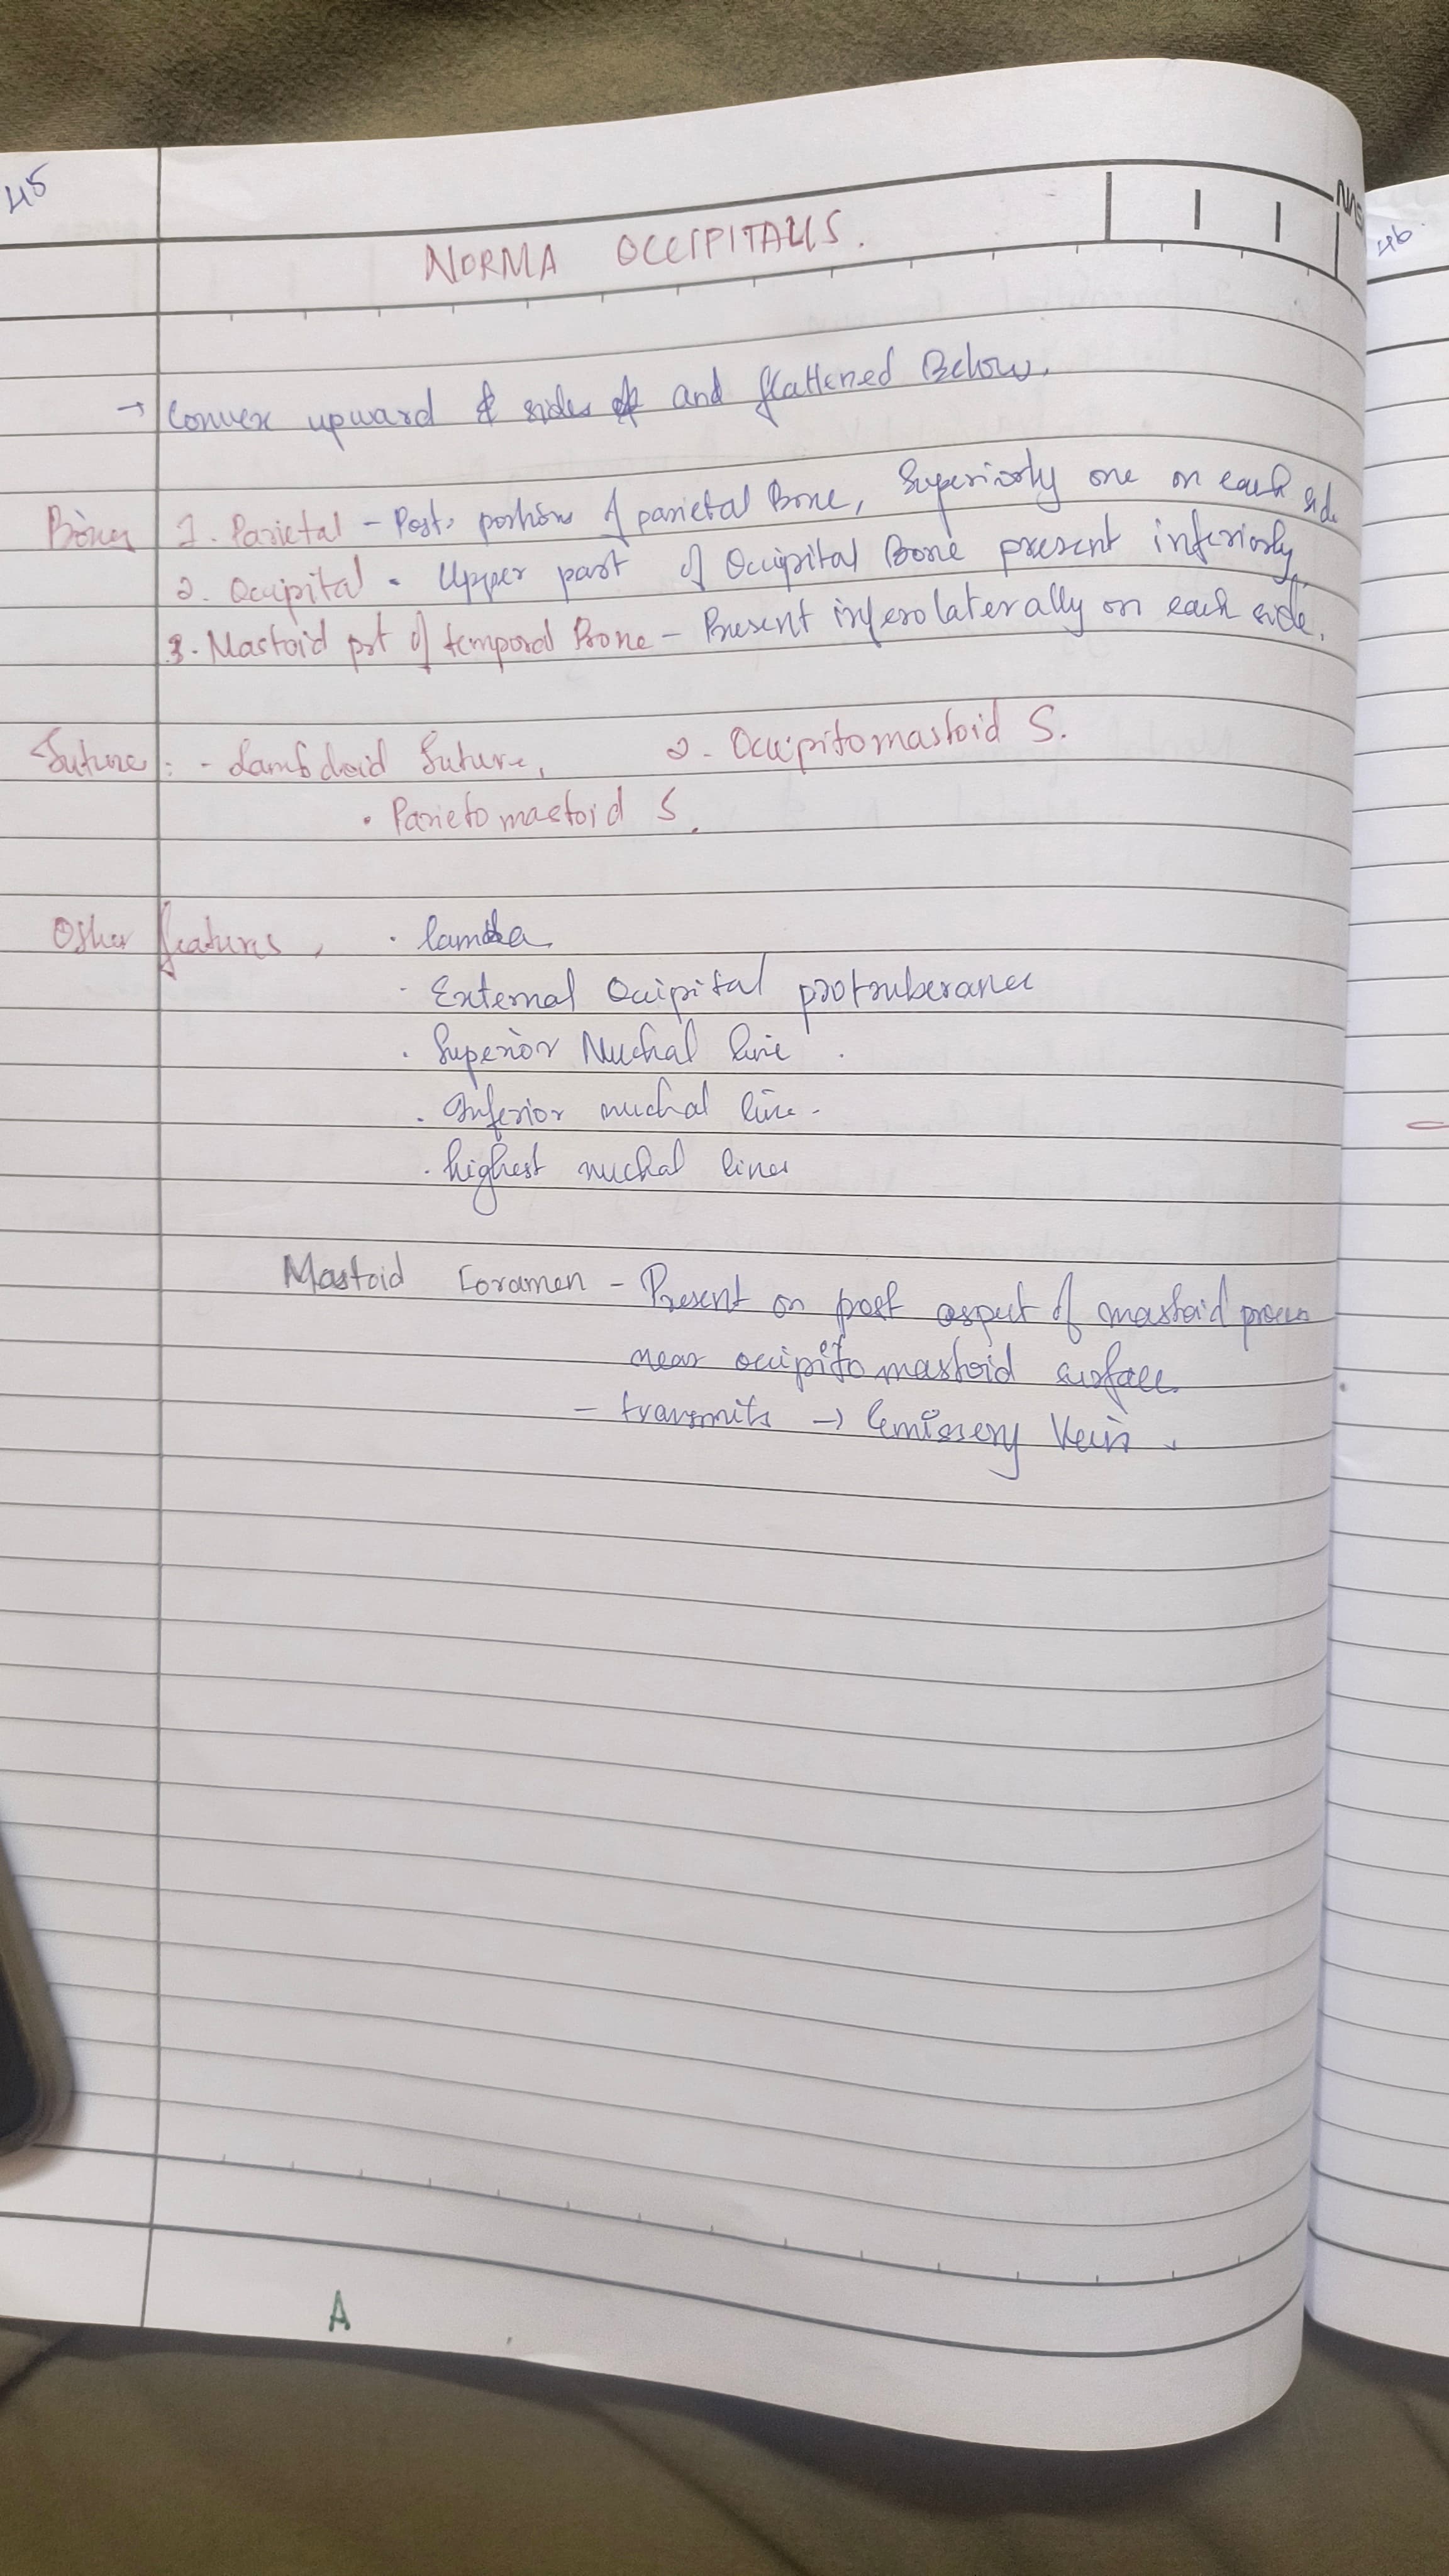 45
NORMA OCCIPITALIS.
46
→ Convex upward & sides and flattened Below.
Bones 1. Parietal - Post. portion of parietal Bone, Superiorly one on each side
2. Occipital - Upper part of Occipital Bone present inferiorly,
3. Mastoid prt of temporal Bone - Present inferolaterally on each side.
Suture :- Lambdoid Suture, 2. Occipitomastoid S.
• Parietomastoid S.
Other features, • lambda
• External Occipital protruberance
• Superior Nuchal line .
• Inferior nuchal line -
• highest nuchal lines
Mastoid Foramen - Present on post aspect of mastoid process
near occipitomastoid surface.
- transmits → Emissery Vein.
A